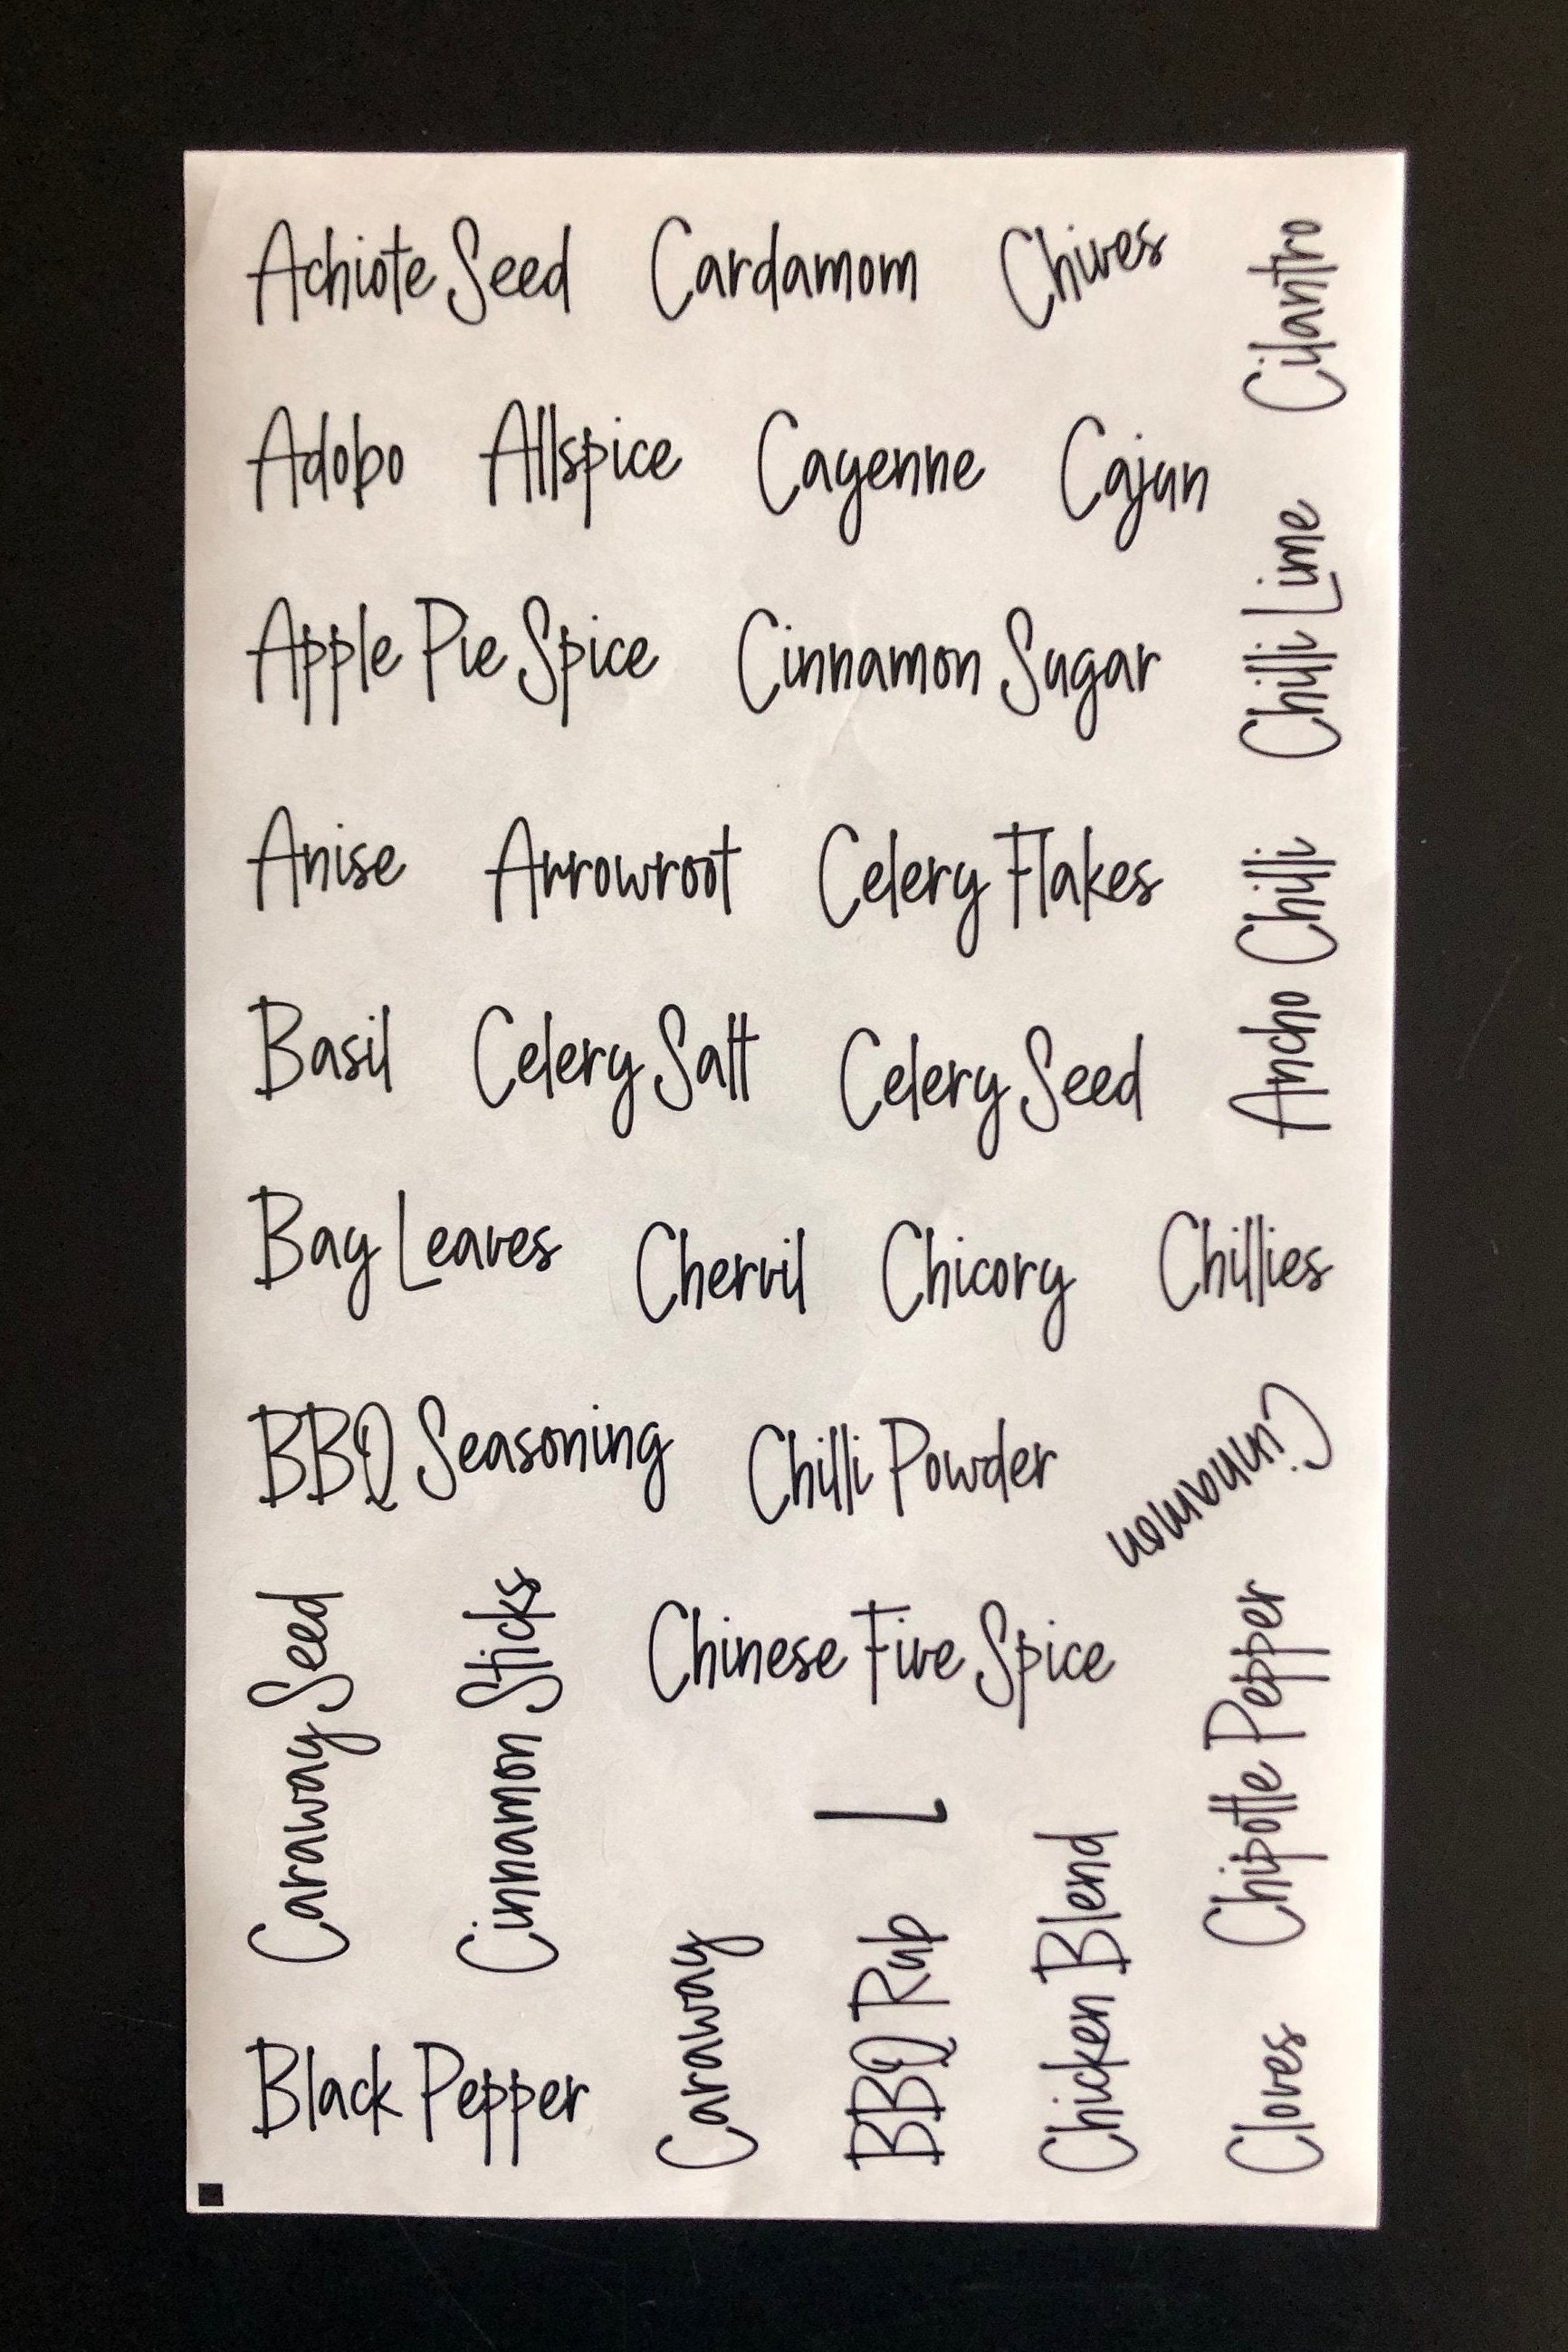 Achiote Seed Cardamom Chives
Cilantro
Adobo Allspice Cayenne Cajun
Chilli Lime
Apple Pie Spice Cinnamon Sugar
Anise Arrowroot Celery Flakes
Ancho Chilli
Basil Celery Salt Celery Seed
Bay Leaves Chervil Chicory Chillies
BBQ Seasoning Chilli Powder
Cinnamon
Caraway Seed
Cinnamon Sticks
Chinese Five Spice
Chipotle Pepper
L
Black Pepper
Caraway
BBQ Rub
Chicken Blend
Cloves